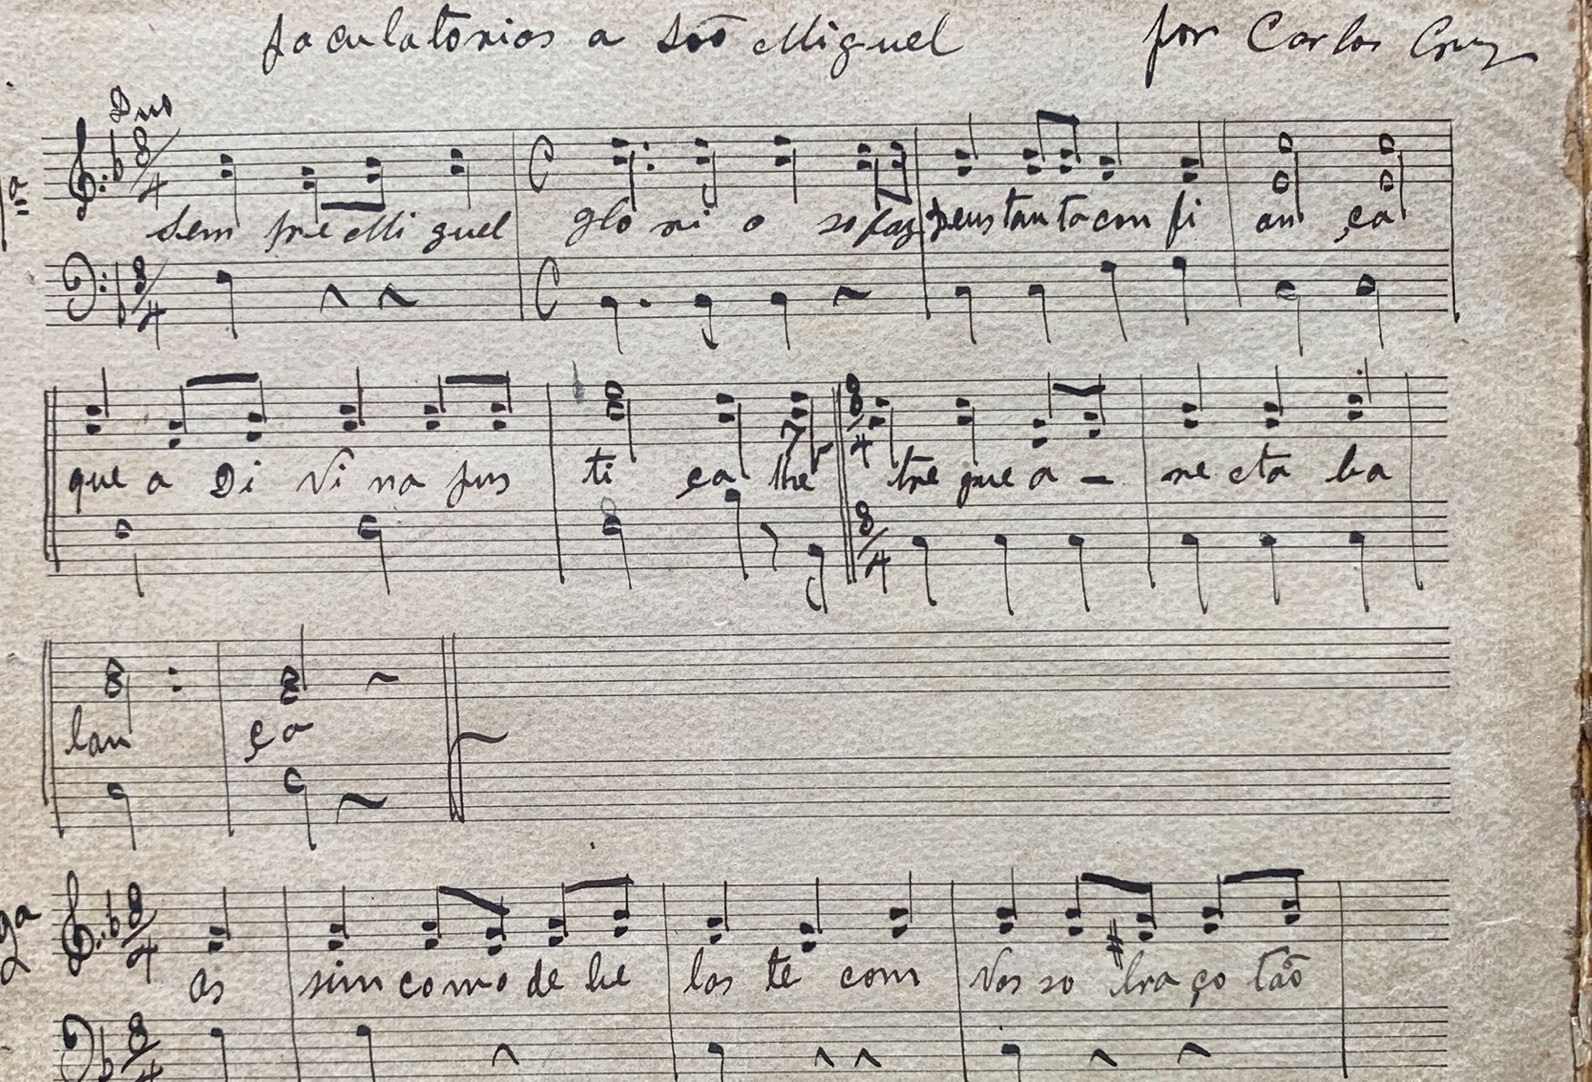 Jaculatorias a São Miguel por Carlos Cruz
Duo
1ª
3/4 C
Sem pre Mi guel glo ri o so faz Deus tan ta con fi an ça
3/4 C
que a Di vi na jus ti ça lhe 3/4 tre gue a - re cta ba
3/4
lan ça
2ª
3/4
As sim co mo de be las te com Vos so bra ço tão
3/4